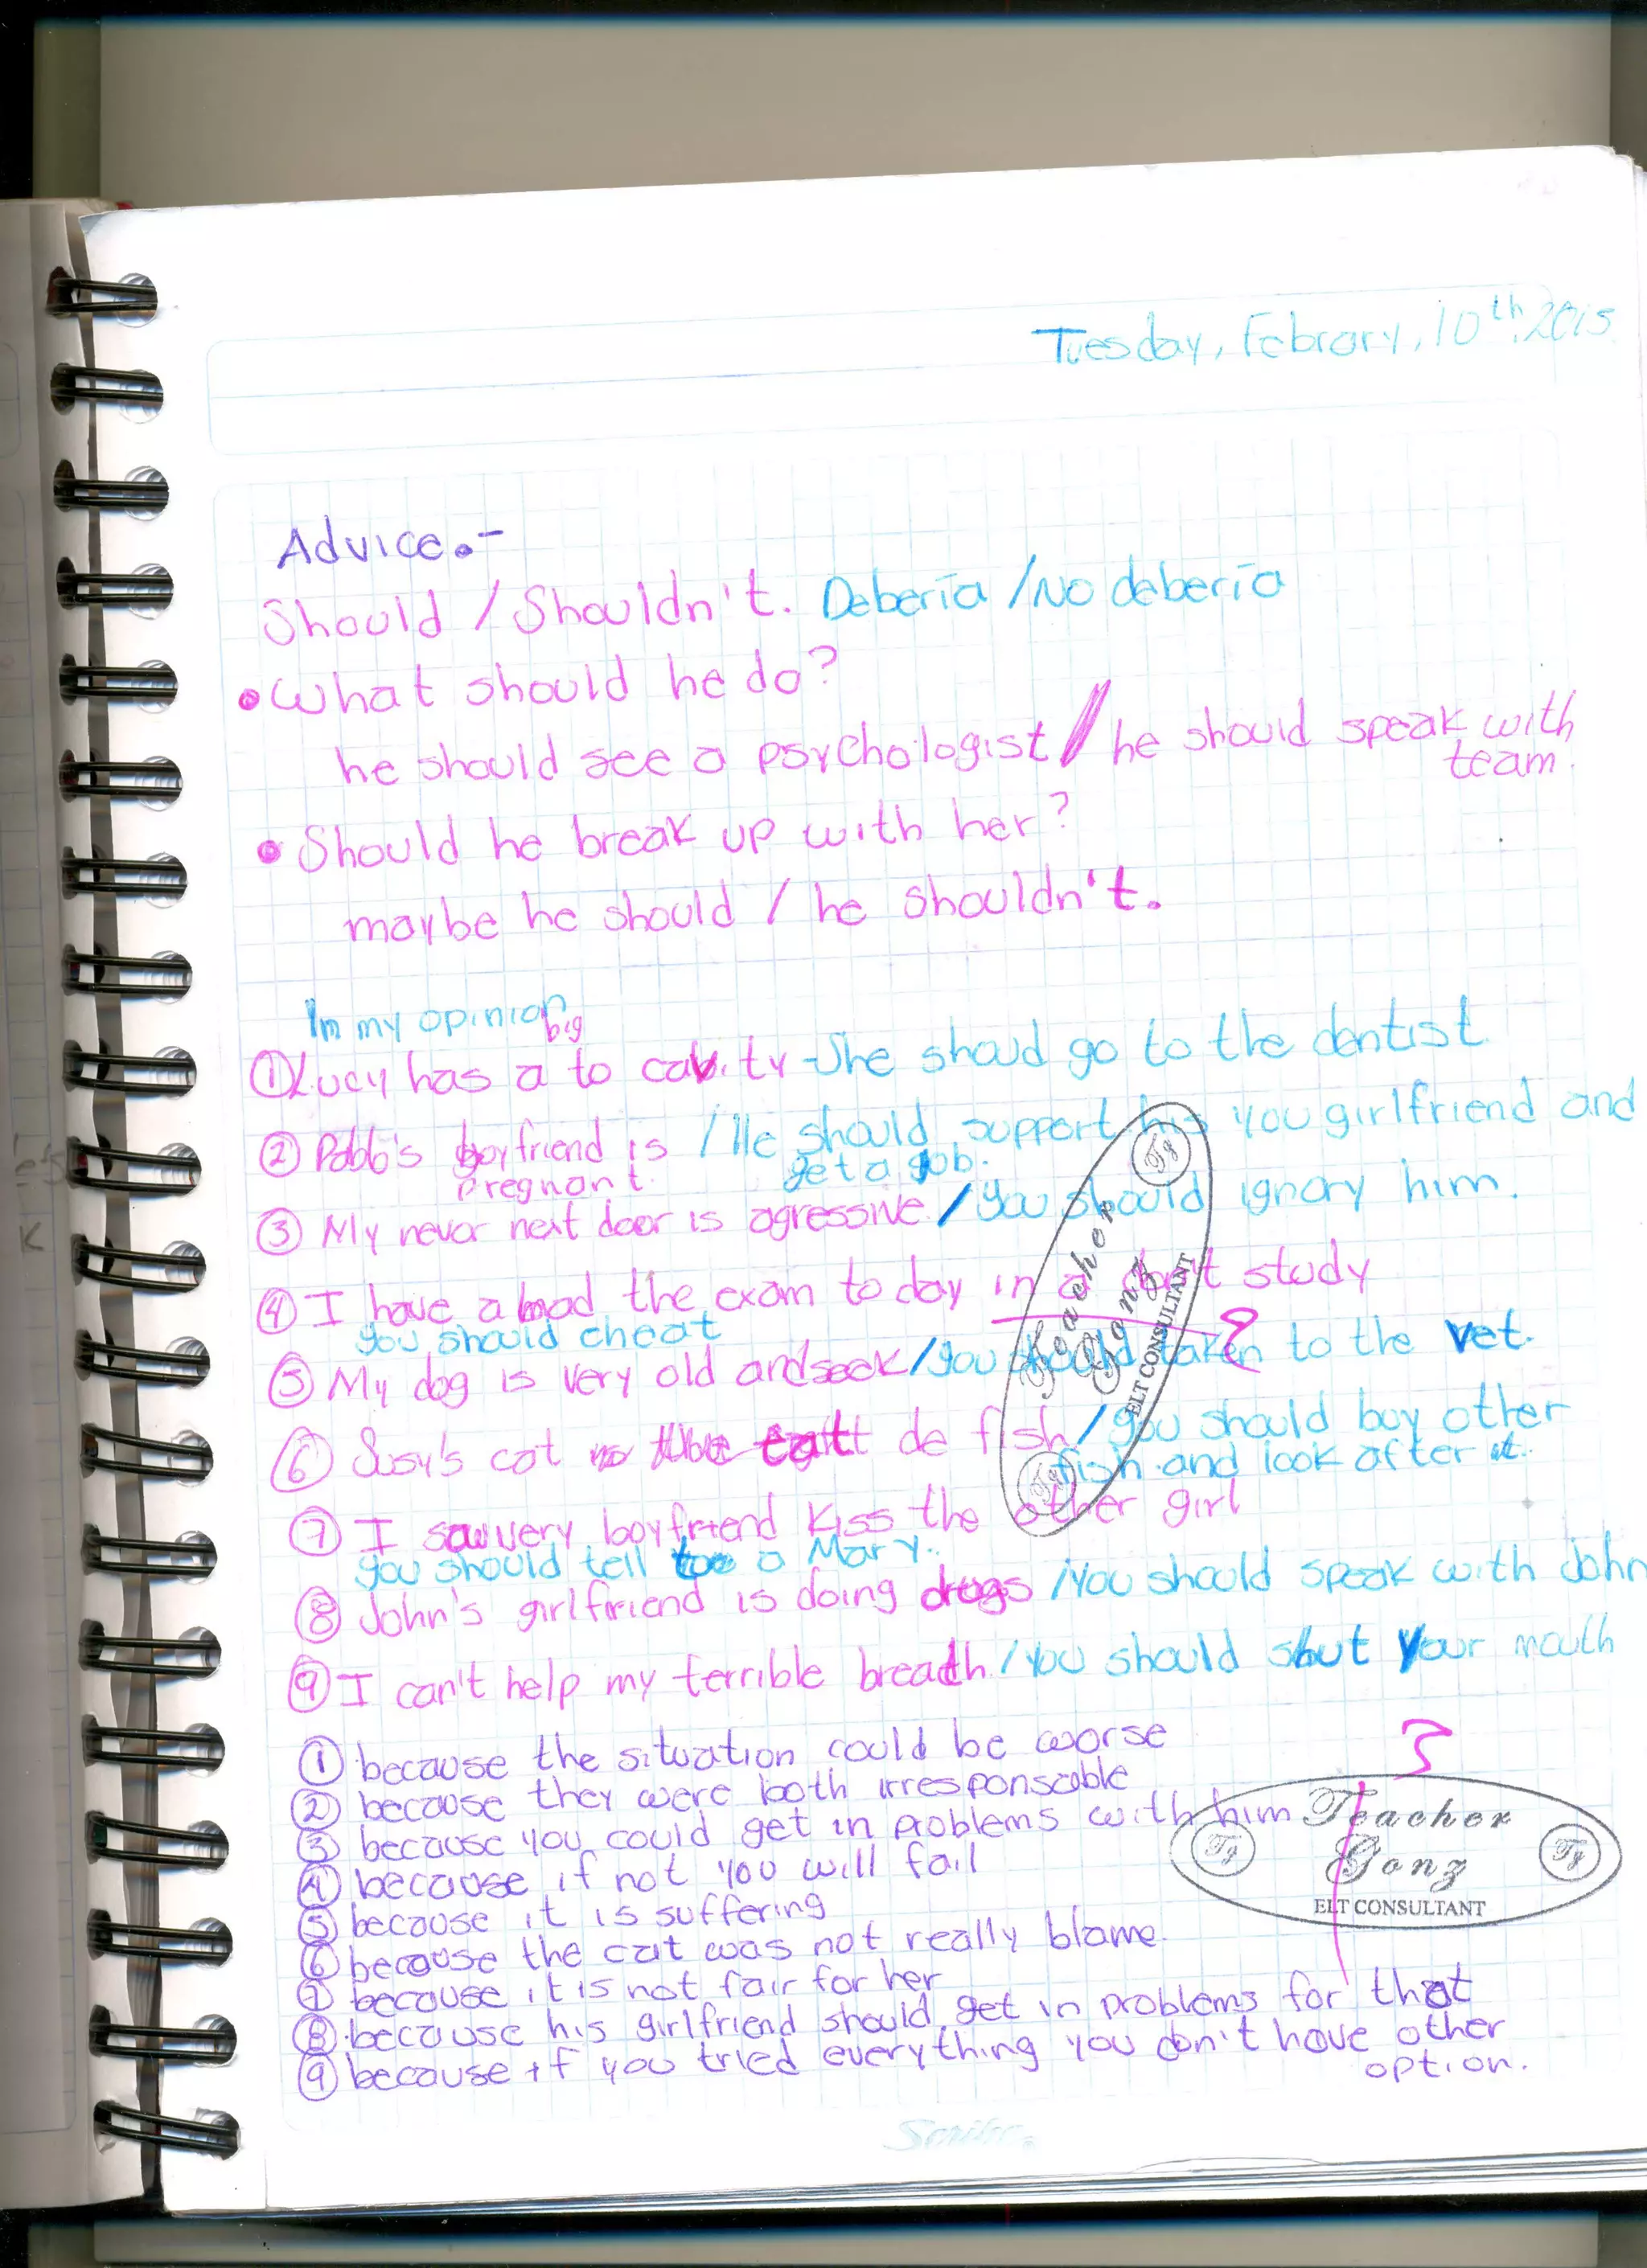 Tuesday, Febrary, 10th, 2015.
Advice.-
Should / Shouldn't. Debería / No debería
• What should he do?
he should see a psychologist / he should speak with
team.
• Should he break up with her?
maybe he should / he shouldn't.
In my opinion
big
① Lucy has a to cavity - She shoud go to the dentist
② Pablo's boyfriend is / He should support his you girlfriend and
pregnant. get a job.
③ My never next door is agressive. / You should ignory him.
④ I have a bad the exam to day in a don't study
you should cheat
⑤ My dog is very old and seek / you should taken to the vet.
⑥ Susy's cat eatt de fish / you should buy other
fish and look after it.
⑦ I saw very boyfriend kiss the other girl
you should tell too a Mary.
⑧ John's girlfriend is doing drugs / you should speak with John
⑨ I can't help my terrible breath. / you should shut your mouth
① because the situation could be worse
② because they were both irresponsable
③ because you could get in problems with him
④ because if not you will fail
⑤ because it is suffering
⑥ because the cat was not really blame.
⑦ because it is not fair for her
⑧ because his girlfriend should get in problems for that
⑨ because if you tried everything you don't have other
option.
Teacher
Gonz
ELT CONSULTANT
Tg
Tg
Teacher
Gonz
ELT CONSULTANT
Tg
Tg
Scribe